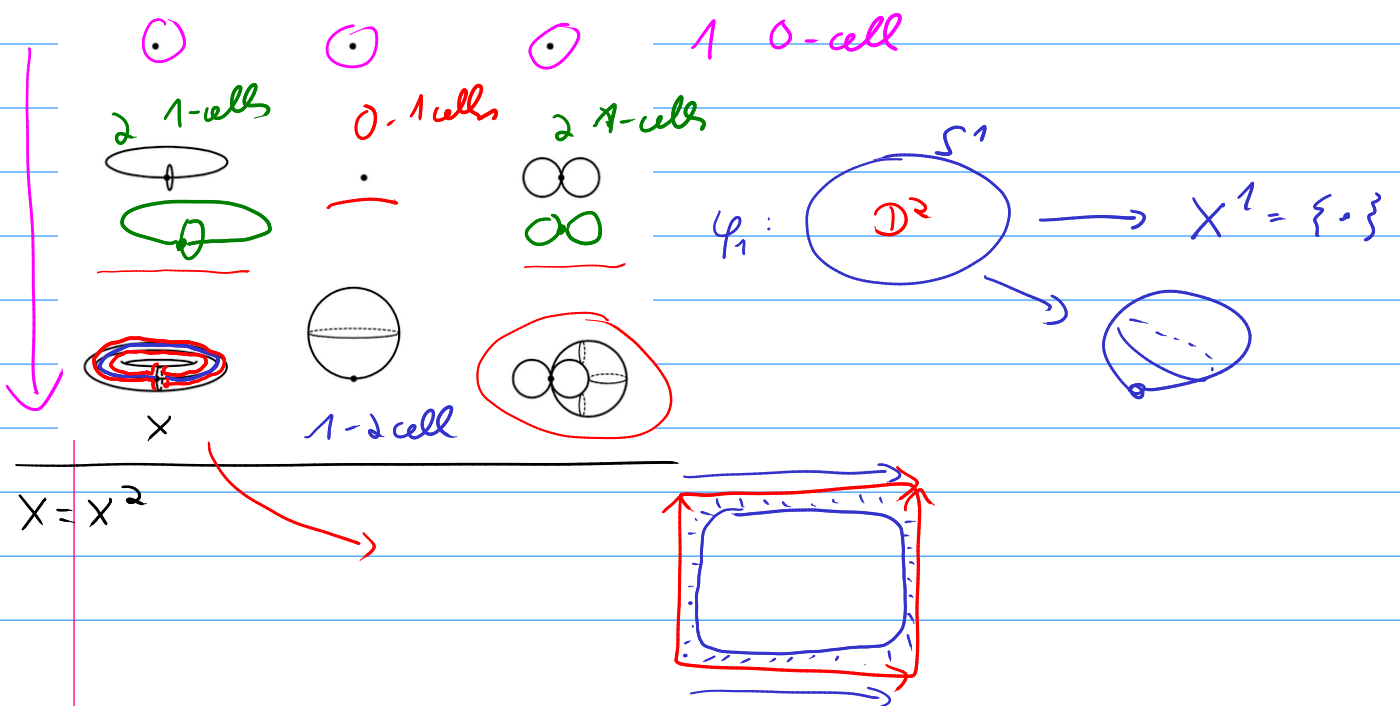 1 0-cell
2 1-cells
0-1cells
2 1-cells
S¹
φ₁ : D² → X¹ = {·}
X
1-2cell
X = X²